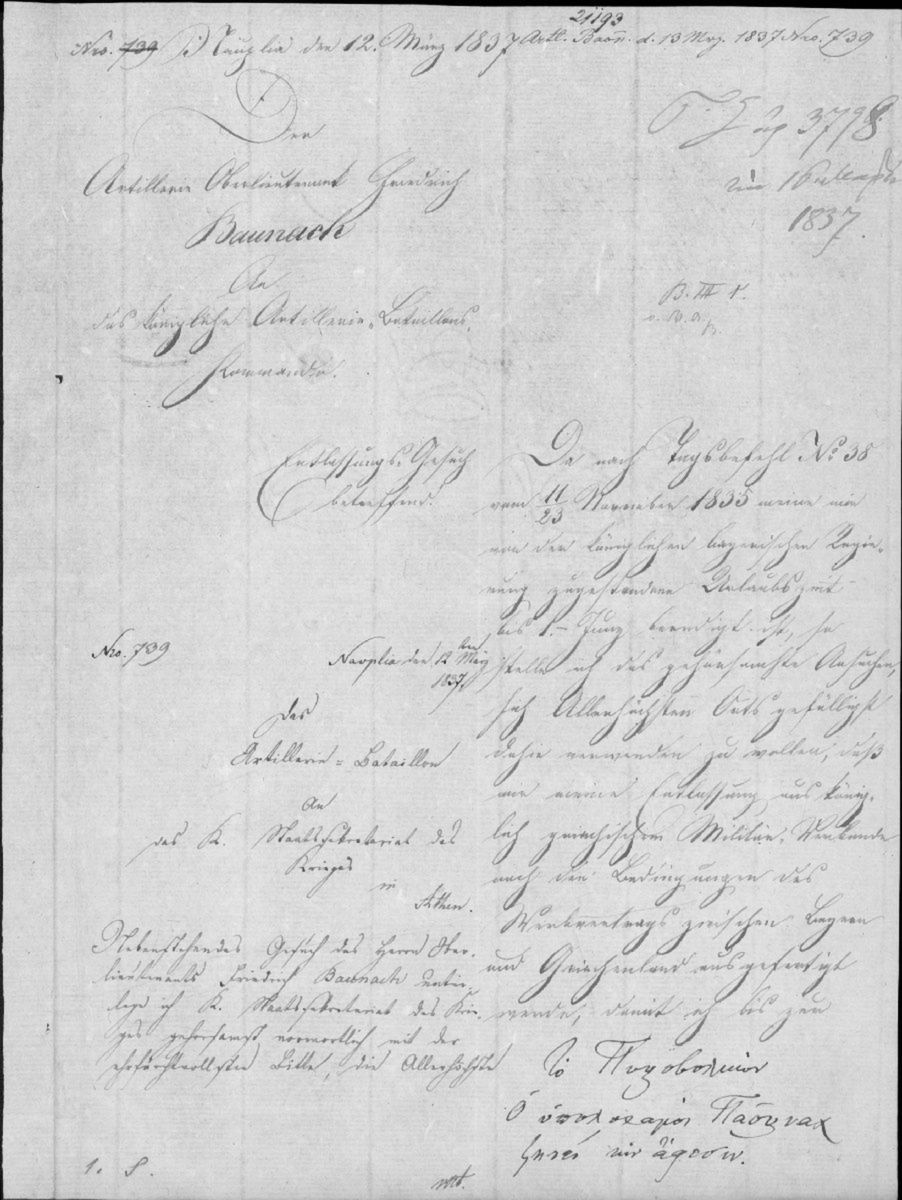 21193
Nro. 739 Nauplia den 12. März 1837 Artl. Baon. d. 13 Mrz. 1837 Nro. 739
Der
3798
Artillerie Oberlieutenant Friedrich
16
1837.
Baunach
An
B. III
das königliche Artillerie-Bataillons-
Kommando.
Entlassungs-Gesuch
betreffend.
Da nach Tagsbefehl No 38
vom 11/23 November 1835 meine mir
von der königlichen bayerischen Regie-
rung zugestandene Urlaubszeit
bis 1. Juny beendigt ist, so
stelle ich das gehorsamste Ansuchen,
sich Allerhöchsten Orts gefälligst
dahin verwenden zu wollen, daß
mir meine Entlassung aus könig-
lich griechischem Militär-Verbande
nach den Bedingungen des
Werbvertrags zwischen Bayern
und Griechenland ausgefertigt
werde, damit ich bis zum
Nro. 739
Nauplia den 12 März
1837.
Das
Artillerie-Bataillon
An
das K. Staatssekretariat des
Krieges
in
Athen.
Nebenstehendes Gesuch des Herrn Ober-
lieutenants Friedrich Baunach unter-
lege ich K. Staatssekretariat des Krie-
ges gehorsamst mit der
ehrfurchtvollsten Bitte, die Allerhöchste
Τὸ Πυροβολικὸν
Ὁ ὑπολοχαγὸς Πάουναχ
ζητεῖ τὴν ἄφεσιν.